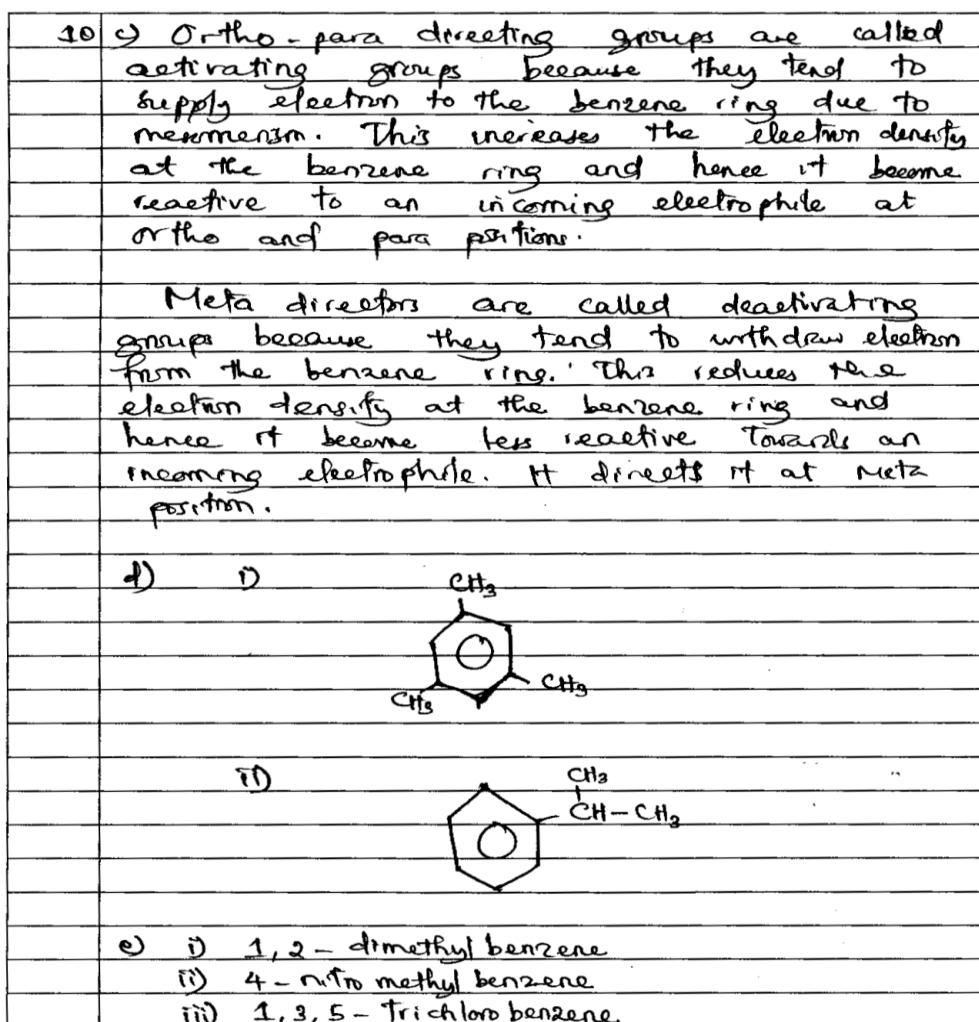 10 c) Ortho-para directing groups are called
activating groups because they tend to
supply electron to the benzene ring due to
mesomerism. This increases the electron density
at the benzene ring and hence it become
reactive to an incoming electrophile at
ortho and para positions.
Meta directors are called deactivating
groups because they tend to withdraw electron
from the benzene ring. This reduces the
electron density at the benzene ring and
hence it become less reactive towards an
incoming electrophile. It directs it at Meta
position.
d) i)
CH3
CH3 CH3
ii)
CH3
CH-CH3
e) i) 1,2 - dimethyl benzene
ii) 4 - nitro methyl benzene
iii) 1,3,5 - Trichloro benzene